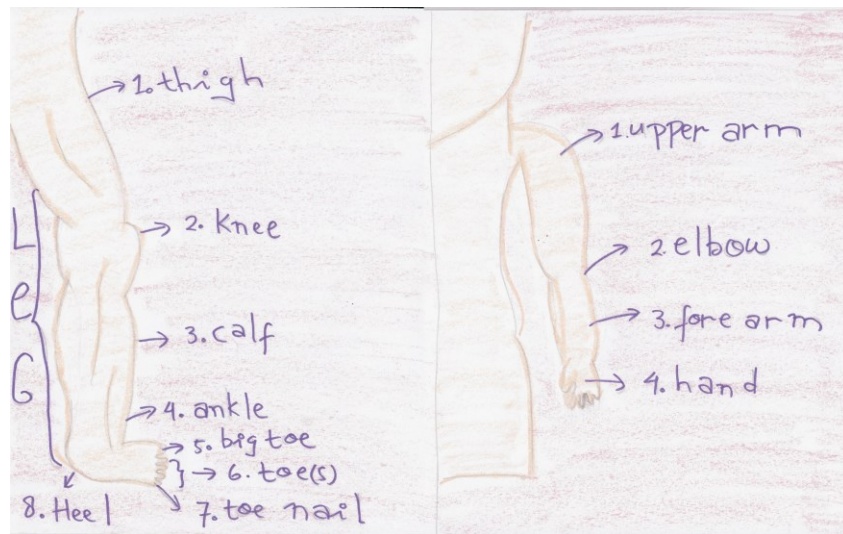 1. thigh
2. Knee
LeG
3. calf
4. ankle
5. big toe
6. toe(s)
7. toe nail
8. Heel
1. upper arm
2. elbow
3. fore arm
4. hand